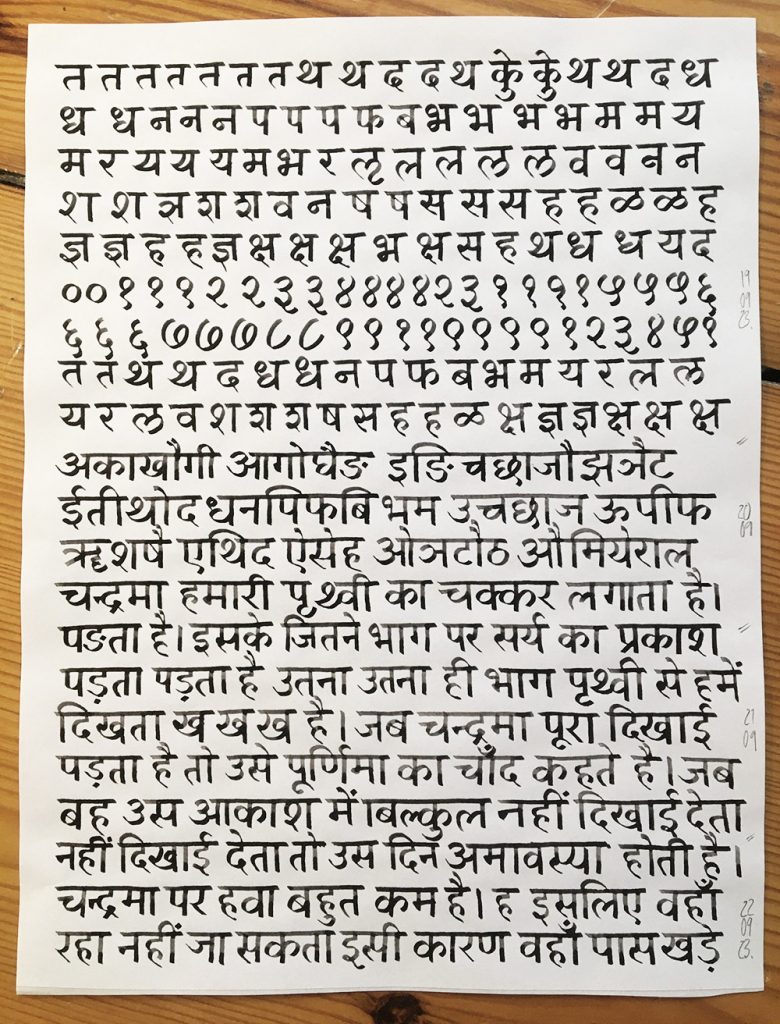 त त त त त त त त थ थ द द थ कु कु थ थ द ध
ध ध न न न प प प फ ब भ भ भ भ म म य
म र य य य म भ र ऌ ल ल ल ल व व न न
श श ञ श श व न ष ष स स स ह ह ळ ळ ह
ज्ञ ज्ञ ह ह ज्ञ क्ष क्ष क्ष भ क्ष स ह थ ध ध य द
००१११२२३३४४४४२३११११५५५६
६६६७७७८८९९११९९९९१२३४५९
त त थ थ द ध ध न प फ ब भ म य र ल ल
य र ल व श श श ष स ह ह ळ क्ष ज्ञ ज्ञ क्ष क्ष क्ष
अकाखौगी आगोघैङ इङिचछाजौझञैट
ईतीथोदधनपिफबि भम उचछाज ऊपीफ
ॠशषै एथिद ऐसेह ओञटौठ औमियेराल
चन्द्रमा हमारी पृथ्वी का चक्कर लगाता है।
पङता है। इसके जितने भाग पर सर्य का प्रकाश
पड़ता पड़ता है उतना उतना ही भाग पृथ्वी से हमें
दिखता ख ख ख है। जब चन्द्रमा पूरा दिखाई
पड़ता है तो उसे पूर्णिमा का चाँद कहते है। जब
बह उस आकाश में बिल्कुल नहीं दिखाई देता
नहीं दिखाई देता तो उस दिन अमावस्या होती है।
चन्द्रमा पर हवा बहुत कम है। ह इसलिए वहाँ
रहा नहीं जा सकता इसी कारण वहाँ पास खड़े
19
09
23.
20
09
21
09
22
09
23.